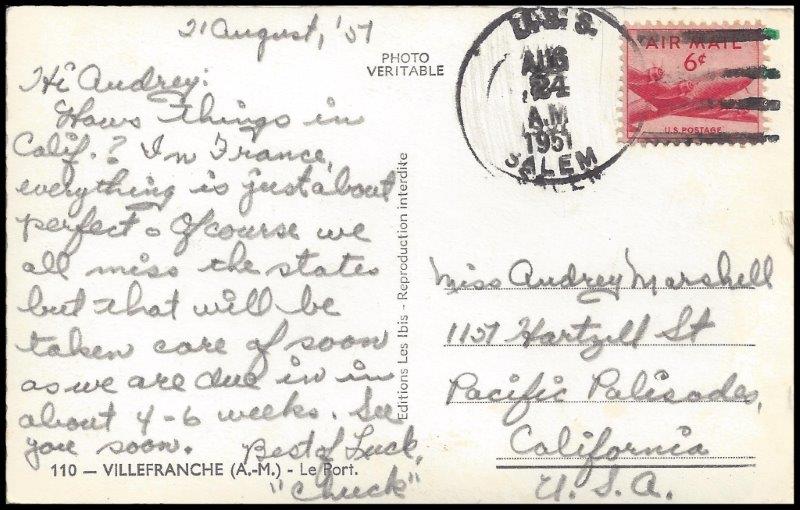 21 August, '51
PHOTO
VERITABLE
Hi Audrey:
Haws things in
Calif.? In France,
everything is just about
perfect. Of course we
all miss the states
but that will be
taken care of soon
as we are due in in
about 4-6 weeks. See
you soon.
Best of Luck,
"Chuck"
110 — VILLEFRANCHE (A.-M.) - Le Port.
Editions Les Ibis - Reproduction interdite
U.S.S.
AUG
24
A.M
1951
SALEM
AIR MAIL
6¢
U.S. POSTAGE
Miss Audrey Marshell
1151 Hartzell St
Pacific Palisades,
California
U.S.A.